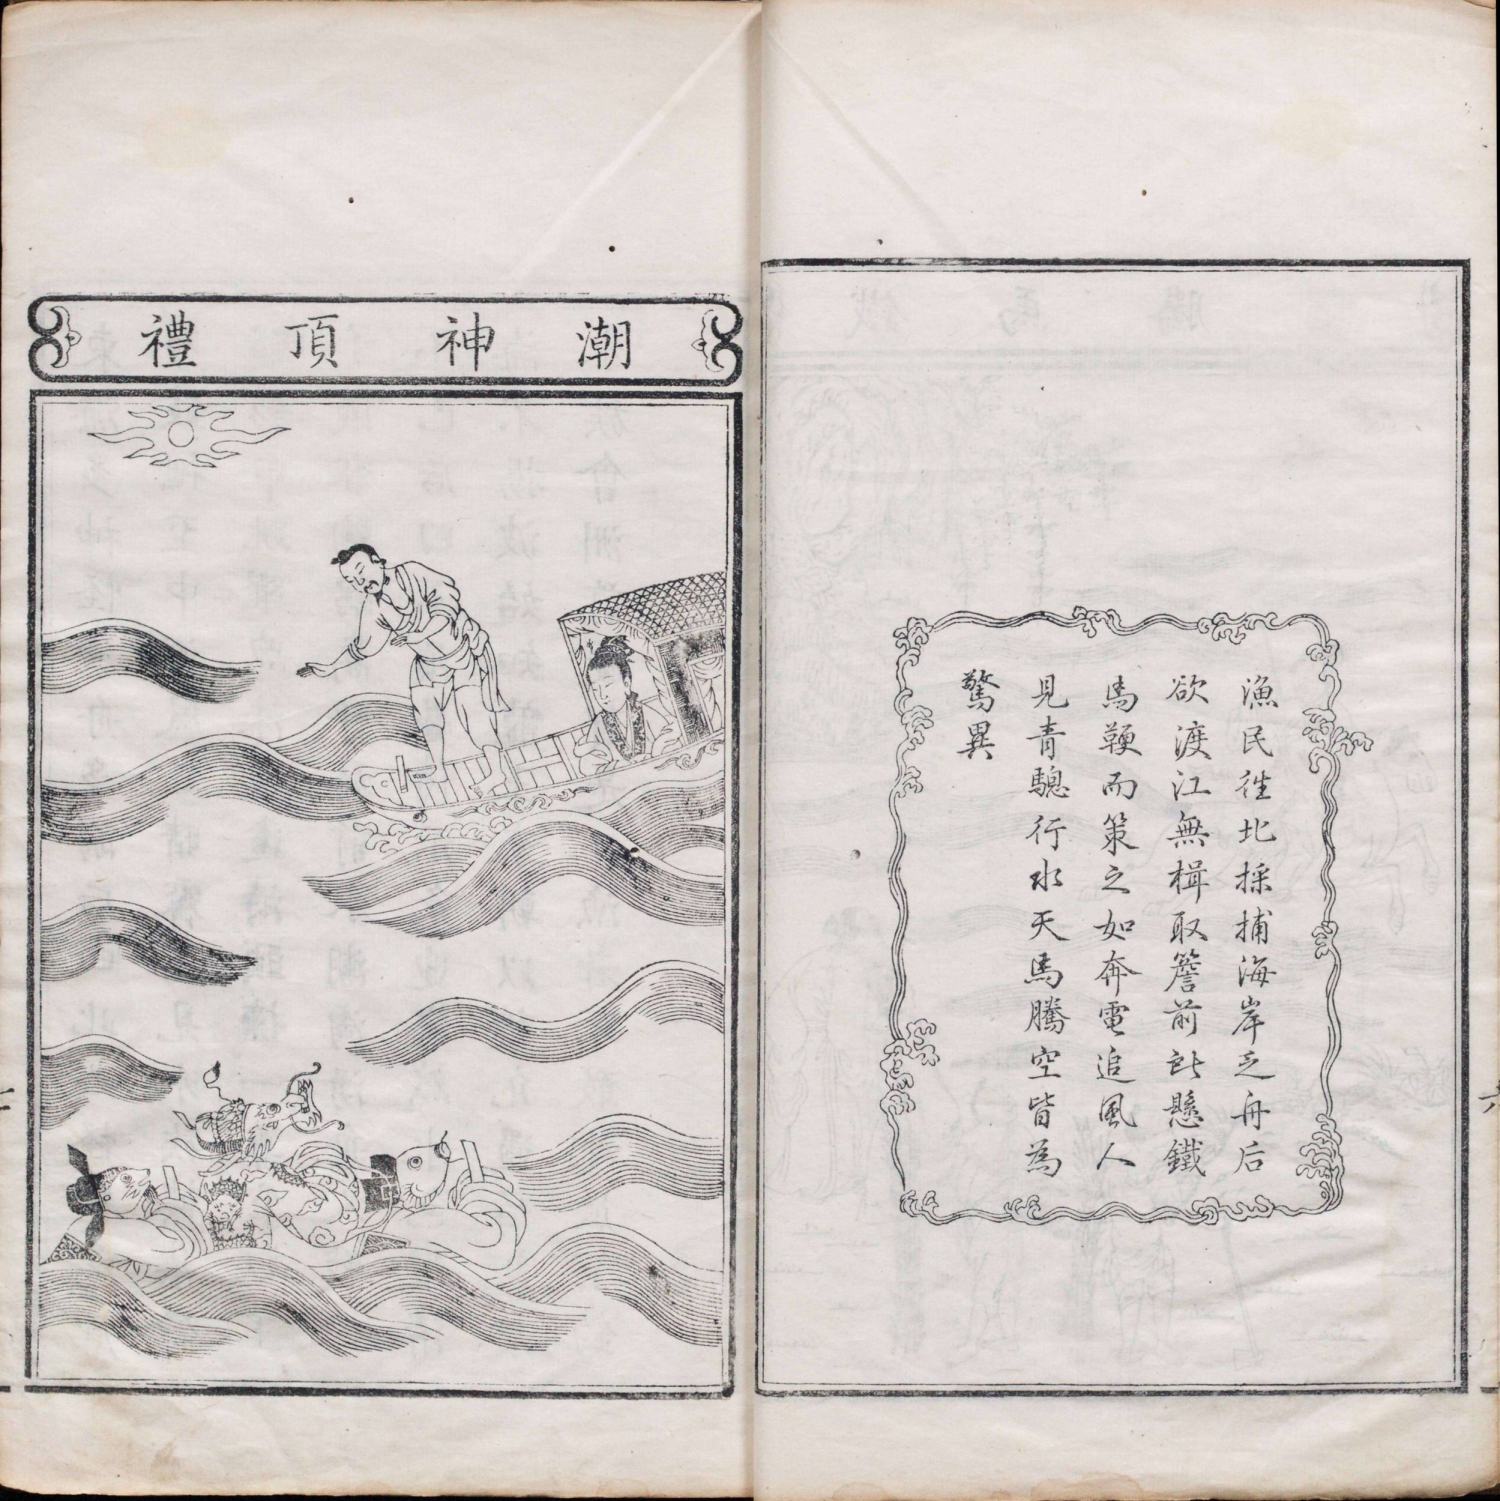 漁民往北採捕海岸乏舟后
欲渡江無楫取簷前所懸鐵
馬鞭而策之如奔電追風人
見青驄行水天馬騰空皆為
驚異
潮神頂禮